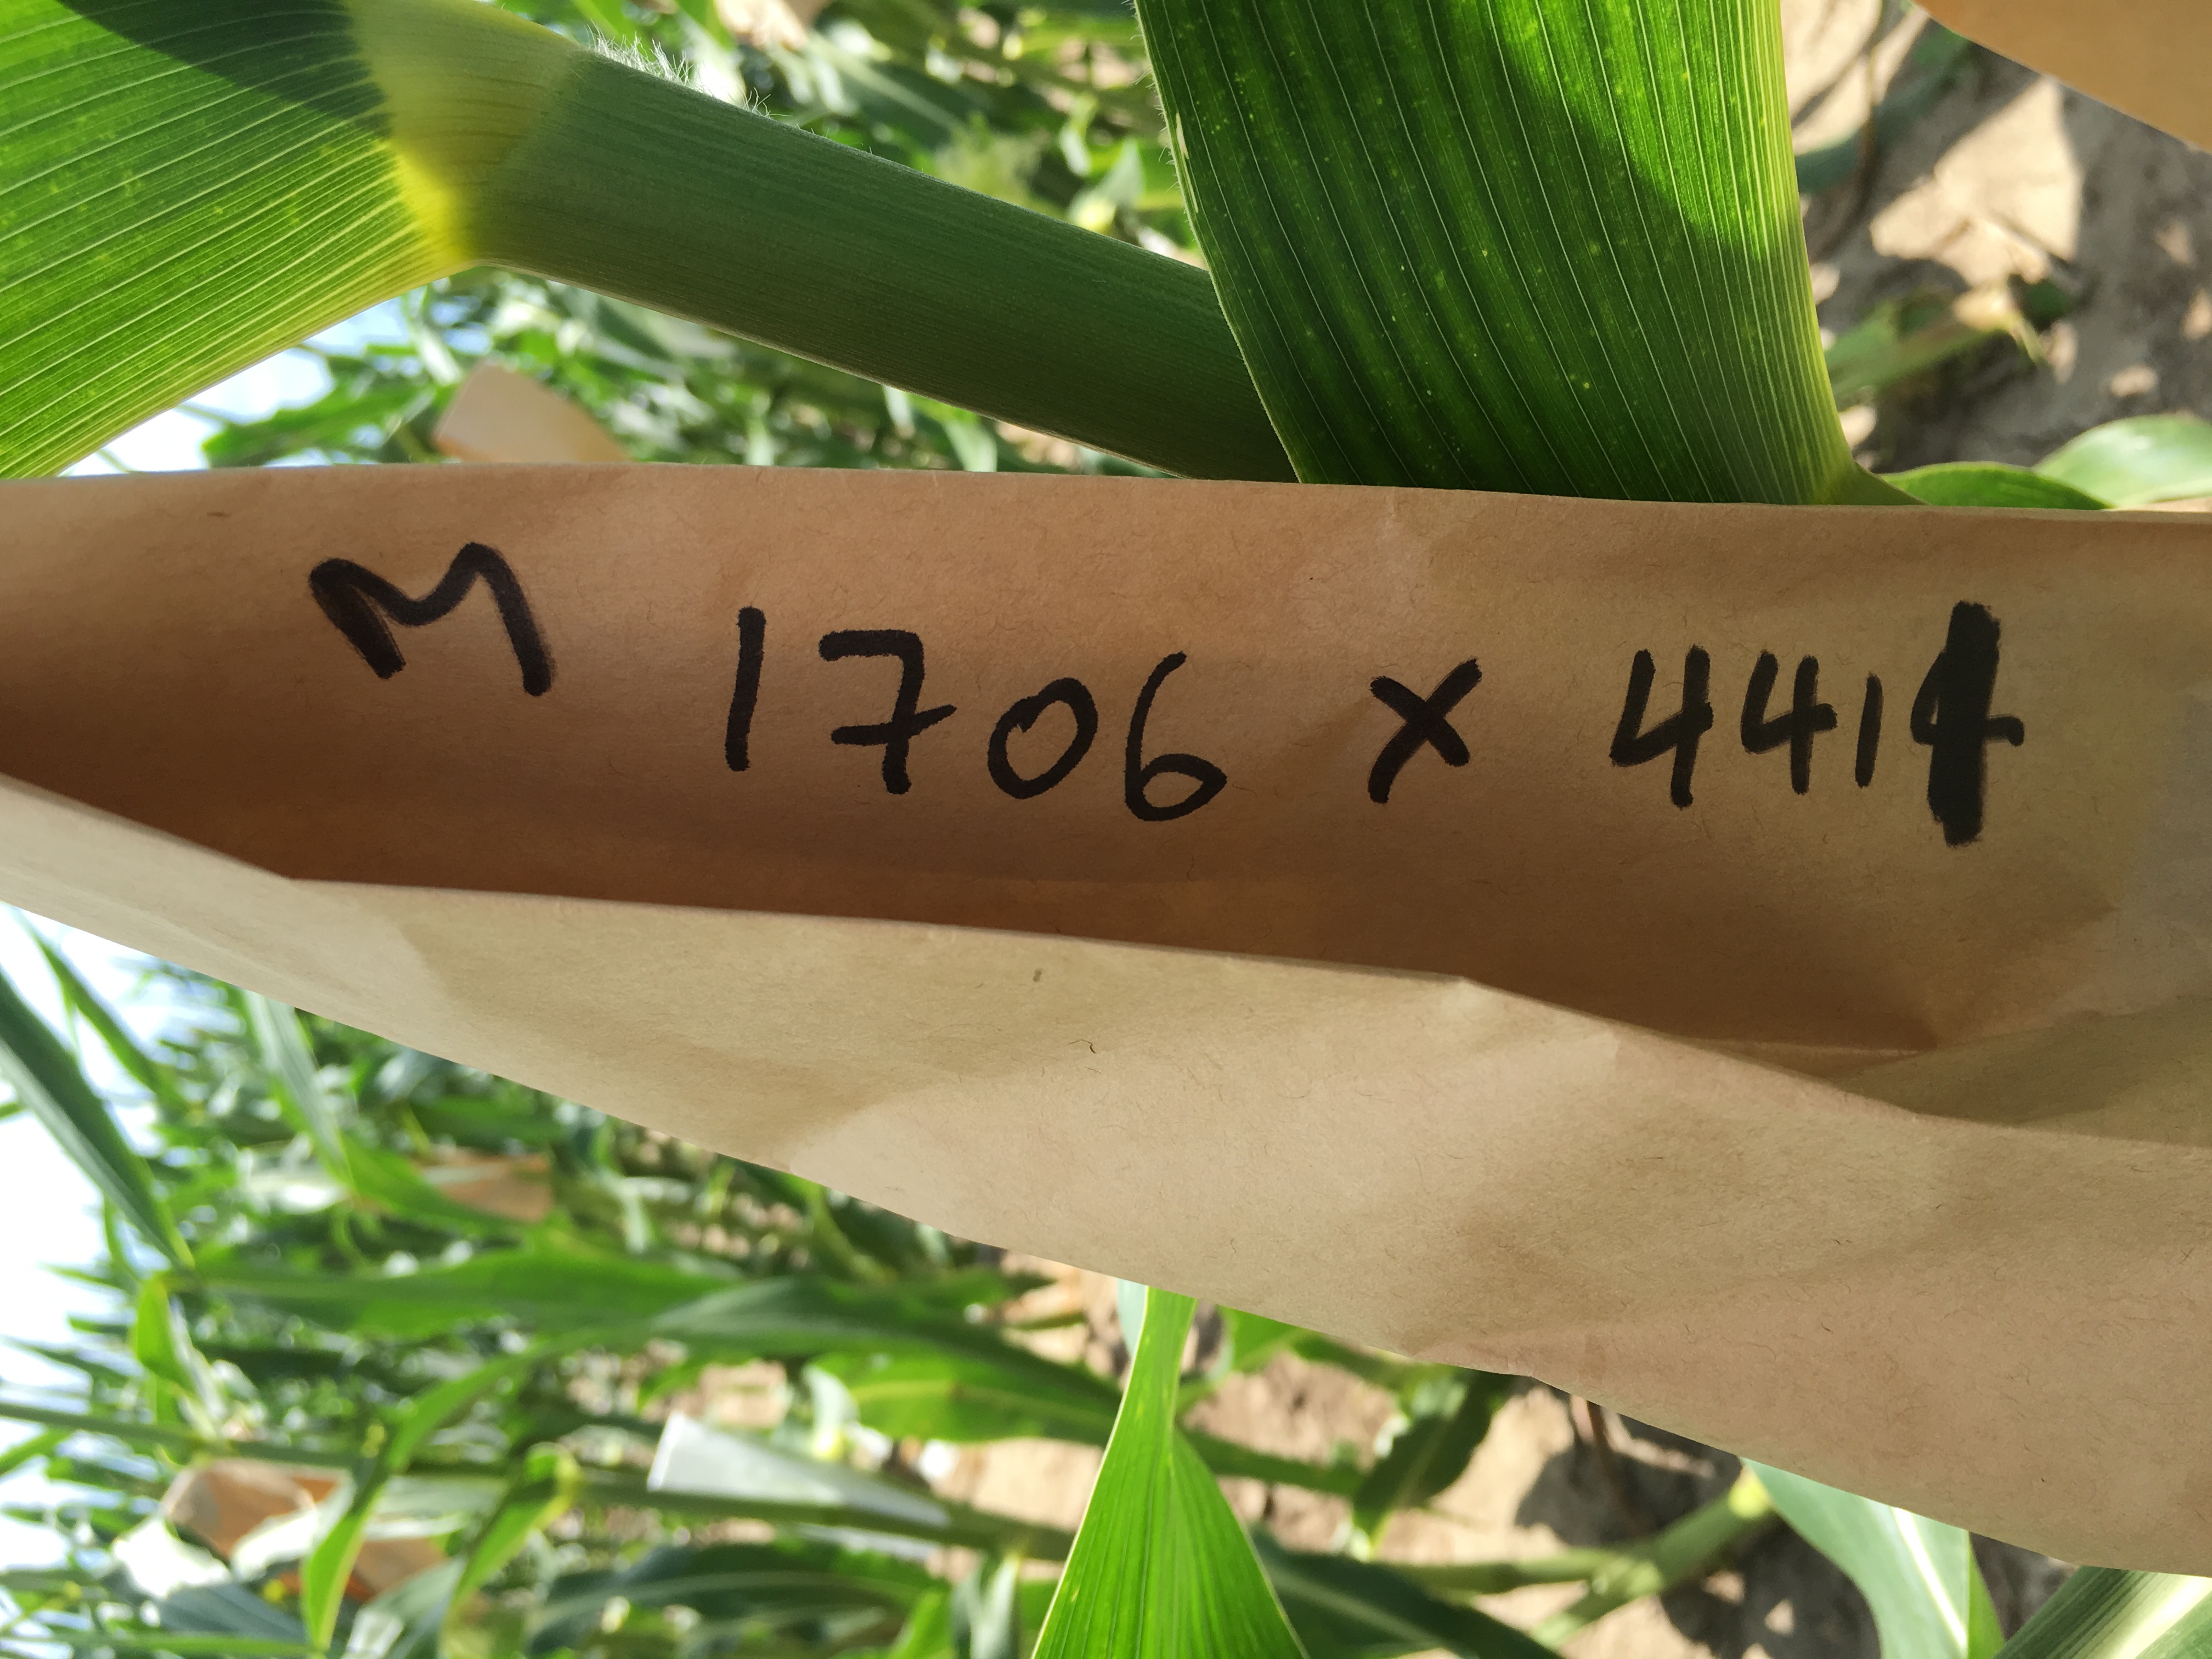 M
1706 x 4414